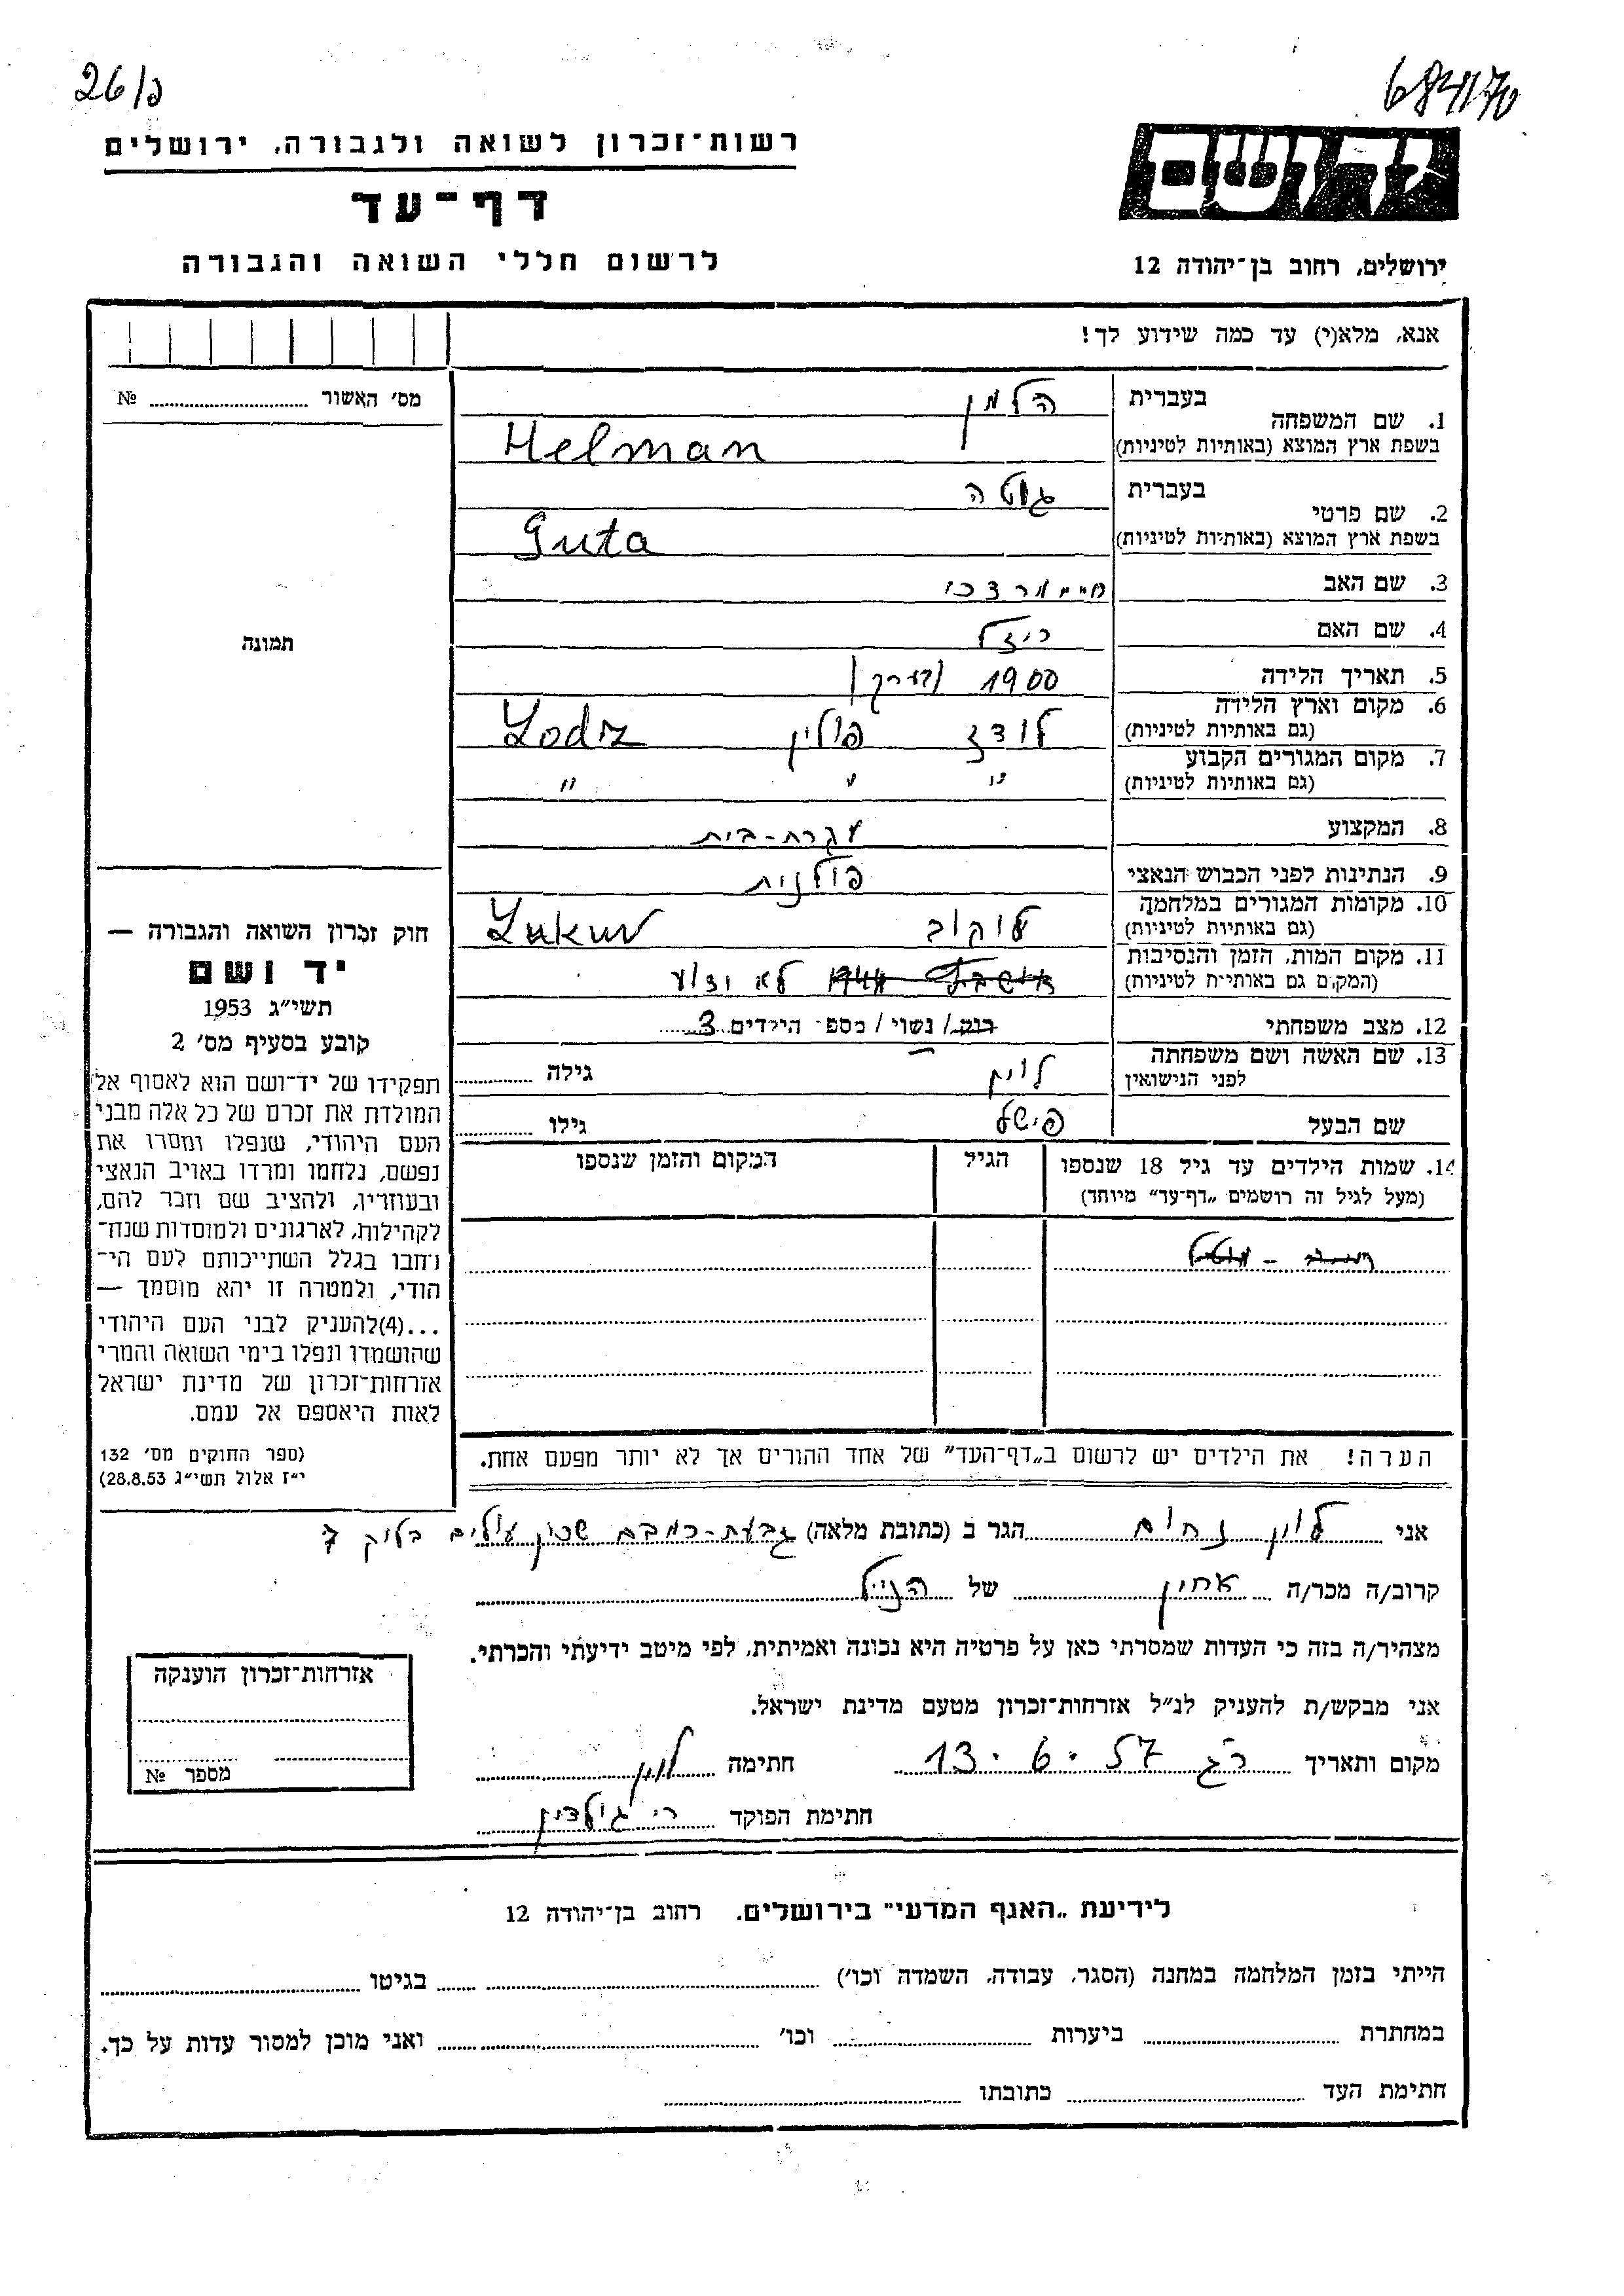 26/פ
684/170
רשות־זכרון לשואה ולגבורה, ירושלים
דף־עד
לרשום חללי השואה והגבורה
יד ושם
ירושלים, רחוב בן־יהודה 12
אנא, מלא(י) עד כמה שידוע לך!
מס׳ האשור № 
1. שם המשפחה בעברית הלמן
בשפת ארץ המוצא (באותיות לטיניות) Helman
2. שם פרטי בעברית גוטה
בשפת ארץ המוצא (באותיות לטיניות) Guta
3. שם האב חיים מרדכי
4. שם האם רייזל
5. תאריך הלידה 1900 (בערך)
6. מקום וארץ הלידה (גם באותיות לטיניות) לודז פולין Lodz
7. מקום המגורים הקבוע (גם באותיות לטיניות) " " "
8. המקצוע עקרת-בית
9. הנתינות לפני הכבוש הנאצי פולנית
10. מקומות המגורים במלחמה (גם באותיות לטיניות) לוקוב Lukuv
11. מקום המות, הזמן והנסיבות (המקום גם באותיות לטיניות) לא ידוע
12. מצב משפחתי רווק / נשוי / מספר הילדים 3
13. שם האשה ושם משפחתה לפני הנישואין לוין גילה
שם הבעל פישל גילו
14. שמות הילדים עד גיל 18 שנספו הגיל המקום והזמן שנספו
(מעל לגיל זה רושמים „דף־עד” מיוחד)
הערה! את הילדים יש לרשום ב„דף־העד” של אחד ההורים אך לא יותר מפעם אחת.
תמונה
חוק זכרון השואה והגבורה —
יד ושם
תשי״ג 1953
קובע בסעיף מס׳ 2
תפקידו של יד־ושם הוא לאסוף אל
המולדת את זכרם של כל אלה מבני
העם היהודי, שנפלו ומסרו את
נפשם, נלחמו ומרדו באויב הנאצי
ובעוזריו, ולהציב שם וזכר להם,
לקהילות, לארגונים ולמוסדות שנח־
רבו בגלל השתייכותם לעם הי־
הודי, ולמטרה זו יהא מוסמך —
...(4)להעניק לבני העם היהודי
שהושמדו ונפלו בימי השואה והמרי
אזרחות־זכרון של מדינת ישראל
לאות היאספם אל עמם.
(ספר החוקים מס׳ 132
י״ז אלול תשי״ג 28.8.53)
אני לוין נחום הגר ב (כתובת מלאה) גבעת- שכון עולים בלוק 7
קרוב/ה מכר/ה אחין של הנ״ל
מצהיר/ה בזה כי העדות שמסרתי כאן על פרטיה היא נכונה ואמיתית, לפי מיטב ידיעתי והכרתי.
אני מבקש/ת להעניק לנ״ל אזרחות־זכרון מטעם מדינת ישראל.
מקום ותאריך רג 13.6.57 חתימה לוין
חתימת הפוקד
אזרחות־זכרון הוענקה
מספר №
לידיעת „האגף המדעי” בירושלים, רחוב בן־יהודה 12
הייתי בזמן המלחמה במחנה (הסגר, עבודה, השמדה וכו׳) בגיטו
במחתרת ביערות וכו׳ ואני מוכן למסור עדות על כך.
חתימת העד כתובתו